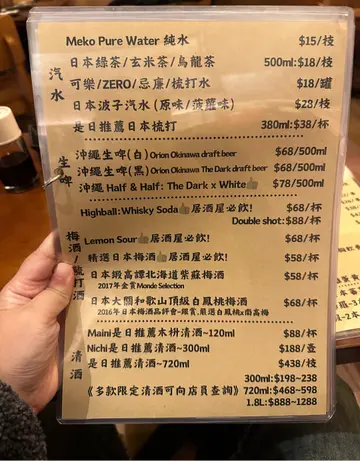 Meko Pure Water 純水 $15/枝
汽水
日本綠茶/玄米茶/烏龍茶 500ml:$18/枝
可樂/ZERO/忌廉/梳打水 $18/罐
日本波子汽水 (原味/菠蘿味) $23/枝
是日推薦日本梳打 380ml:$38/杯
生啤
沖繩生啤(白) Orion Okinawa draft beer $68/500ml
沖繩生啤(黑) Orion Okinawa The Dark draft beer $68/500ml
沖繩 Half & Half: The Dark x White👍 $78/500ml
梅酒/梳打酒
Highball:Whisky Soda👍居酒屋必飲! $68/杯
Double shot:$88/杯
Lemon Sour👍居酒屋必飲! $68/杯
精選日本梅酒👍居酒屋必飲! $58/杯
日本鍛高譚北海道紫蘇梅酒 $58/杯
2017年金賞Monde Selection
日本大關和歌山頂級白鳳桃梅酒 $68/杯
2016年日本梅酒品評會-銀賞.嚴選白鳳桃x南高梅
清酒
Maini是日推薦木枡清酒~120ml $88/杯
Nichi是日推薦清酒~300ml $188/壺
是日推薦清酒~720ml $438/枝
300ml:$198~238
《多款限定清酒可向店員查詢》 720ml:$468~598
1.8L:$888~1288